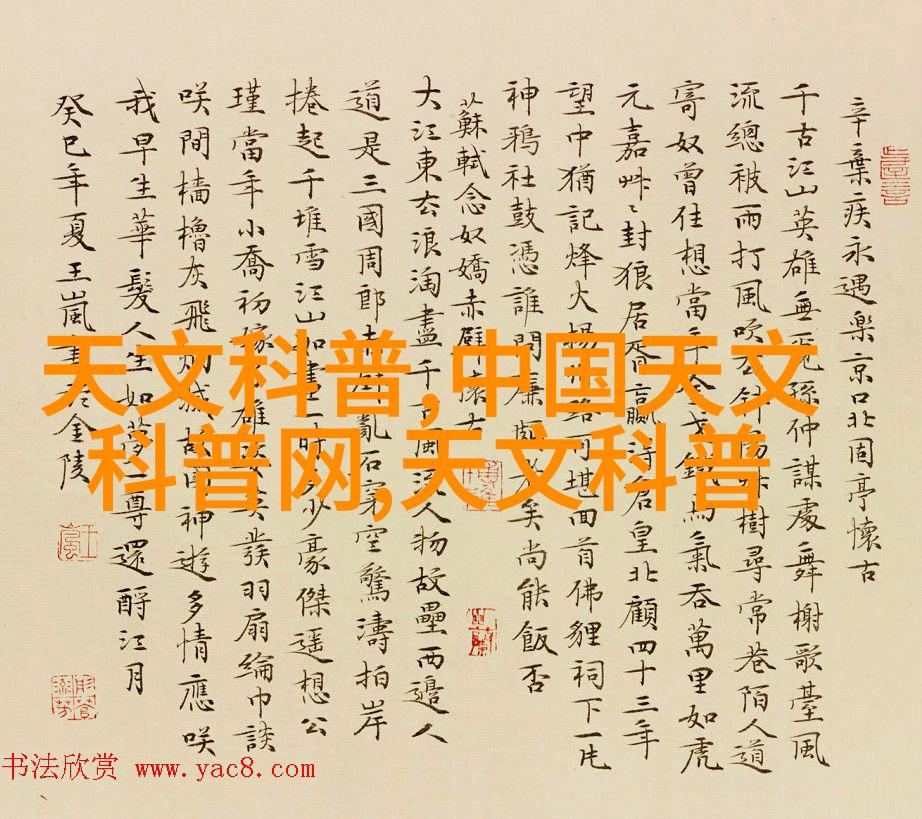 辛棄疾永遇樂京口北固亭懷古
千古江山英雄無覓孫仲謀處舞榭歌臺風
流總被雨打風吹去斜陽草樹尋常巷陌人道
寄奴曾住想當年金戈鐵馬氣吞萬里如虎
元嘉艸〻封狼居胥贏得倉皇北顧四十三年
望中猶記烽火揚州路可堪回首佛貍祠下一片
神鴉社鼓憑誰問廉頗老矣尚能飯否
蘇軾念奴嬌赤壁懷古
大江東去浪淘盡千古風流人物故壘西邊人
道是三國周郎赤壁亂石穿空驚濤拍岸
捲起千堆雪江山如畫一時多少豪傑遥想公
瑾當年小喬初嫁了雄姿英發羽扇綸巾談
咲間檣櫓灰飛煙滅故國神遊多情應咲
我早生華髮人生如夢一尊還酹江月
癸巳年夏王嵐書於金陵
天文科普,中国天文
科普网,天文科普
书法欣赏 www.yac8.com